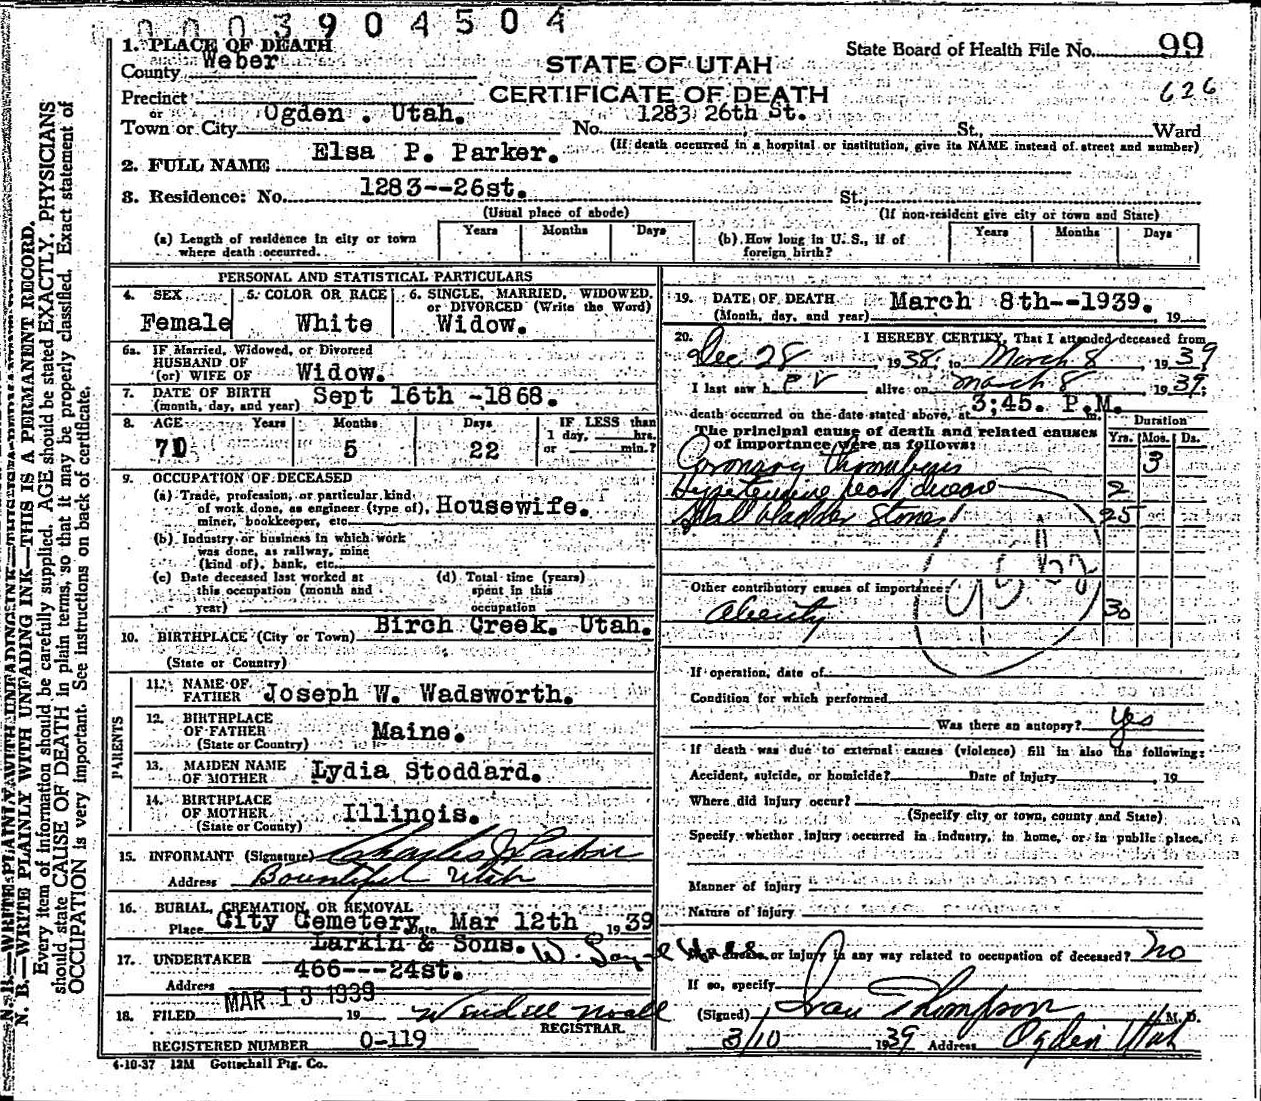 0003904504
1. PLACE OF DEATH
State Board of Health File No. 99
County Weber
STATE OF UTAH
626
Precinct
CERTIFICATE OF DEATH
or
Town or City Ogden . Utah. No. 1283 26th St. St., Ward
(If death occurred in a hospital or institution, give its NAME instead of street and number)
2. FULL NAME Elsa P. Parker.
3. Residence: No. 1283--26st. St.,
(Usual place of abode) (If non-resident give city or town and State)
(a) Length of residence in city or town where death occurred. Years Months Days
(b) How long in U. S., if of foreign birth? Years Months Days
PERSONAL AND STATISTICAL PARTICULARS
4. SEX Female
5. COLOR OR RACE White
6. SINGLE, MARRIED, WIDOWED, or DIVORCED (Write the Word) Widow.
6a. IF Married, Widowed, or Divorced
HUSBAND OF
(or) WIFE OF Widow.
7. DATE OF BIRTH
(month, day, and year) Sept 16th -1868.
8. AGE Years Months Days IF LESS than
1 day, hrs.
or min.?
70 5 22
9. OCCUPATION OF DECEASED
(a) Trade, profession, or particular kind
of work done, as engineer (type of), Housewife.
miner, bookkeeper, etc
(b) Industry or business in which work
was done, as railway, mine
(kind of), bank, etc.
(c) Date deceased last worked at
this occupation (month and
year)
(d) Total time (years)
spent in this
occupation
10. BIRTHPLACE (City or Town) Birch Creek. Utah.
(State or Country)
PARENTS
11. NAME OF
FATHER Joseph W. Wadsworth.
12. BIRTHPLACE
OF FATHER Maine.
(State or Country)
13. MAIDEN NAME
OF MOTHER Lydia Stoddard.
14. BIRTHPLACE
OF MOTHER Illinois.
(State or County)
15. INFORMANT (Signature) Charles J Parker
Address Bountiful Utah
16. BURIAL, CREMATION, OR REMOVAL
Place City Cemetery Date Mar 12th 1939
17. UNDERTAKER Larkin & Sons. W.
Address 466---24st.
18. FILED MAR 13 1939 19 Wendell Noall
REGISTRAR.
REGISTERED NUMBER 0-119
4-10-37 12M Gottschall Ptg. Co.
19. DATE OF DEATH March 8th--1939.
(Month, day, and year) , 19
20. I HEREBY CERTIFY, That I attended deceased from
Dec 28, 1938, to March 8, 1939
I last saw h er alive on March 8, 1939;
death occurred on the date stated above, at 3;45. P.M. m.
The principal cause of death and related causes
of importance were as follows:
Duration
Yrs. Mos. Ds.
Coronary thrombosis 3
Hypertensive heart disease 2
Gall bladder stones 25
Other contributory causes of importance:
Obesity 30
If operation, date of
Condition for which performed
Was there an autopsy? Yes
If death was due to external causes (violence) fill in also the following:
Accident, suicide, or homicide? Date of Injury , 19
Where did injury occur?
(Specify city or town, county and State)
Specify whether injury occurred in industry, in home, or in public place.
Manner of injury
Nature of injury
or injury in any way related to occupation of deceased? no
If so, specify
(Signed) Ivan Thompson, M. D.
3/10 1939 Address Ogden Utah
N. B.—WRITE PLAINLY WITH UNFADING INK—THIS IS A PERMANENT RECORD.
Every item of information should be carefully supplied. AGE should be stated EXACTLY. PHYSICIANS
should state CAUSE OF DEATH in plain terms, so that it may be properly classified. Exact statement of
OCCUPATION is very important. See instructions on back of certificate.